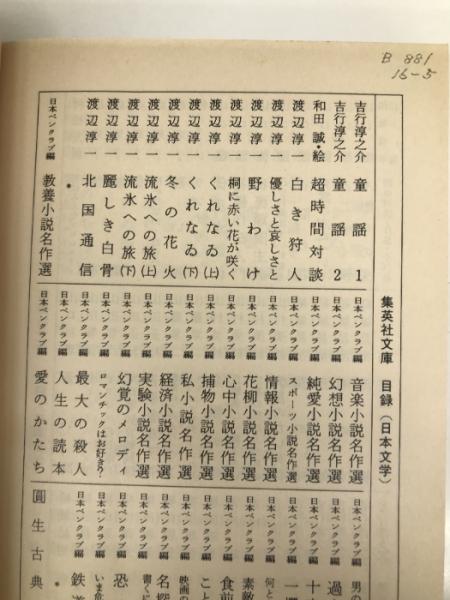 B 881
16-5
集英社文庫 目録(日本文学)
吉行淳之介 童謡1
吉行淳之介 童謡2
和田誠・絵 超時間対談
渡辺淳一 白き狩人
渡辺淳一 優しさと哀しさと
渡辺淳一 野わけ
渡辺淳一 桐に赤い花が咲く
渡辺淳一 くれなゐ(上)
渡辺淳一 くれなゐ(下)
渡辺淳一 冬の花火
渡辺淳一 流氷への旅(上)
渡辺淳一 流氷への旅(下)
渡辺淳一 麗しき白骨
渡辺淳一 北国通信
*
日本ペンクラブ編 教養小説名作選
日本ペンクラブ編 音楽小説名作選
日本ペンクラブ編 幻想小説名作選
日本ペンクラブ編 純愛小説名作選
日本ペンクラブ編 スポーツ小説名作選
日本ペンクラブ編 情報小説名作選
日本ペンクラブ編 花柳小説名作選
日本ペンクラブ編 心中小説名作選
日本ペンクラブ編 捕物小説名作選
日本ペンクラブ編 私小説名作選
日本ペンクラブ編 経済小説名作選
日本ペンクラブ編 実験小説名作選
日本ペンクラブ編 幻覚のメロディ
日本ペンクラブ編 ロマンチックはお好き?
日本ペンクラブ編 最大の殺人
日本ペンクラブ編 人生の読本
日本ペンクラブ編 愛のかたち
日本ペンクラブ編 男の
日本ペンクラブ編 過
日本ペンクラブ編 十
日本ペンクラブ編
日本ペンクラブ編 何と
日本ペンクラブ編 素敵
日本ペンクラブ編 食前
日本ペンクラブ編 こと
日本ペンクラブ編 映画の
日本ペンクラブ編 名
日本ペンクラブ編 恐
日本ペンクラブ編 いま危
日本ペンクラブ編 鉄
*
圓生古典